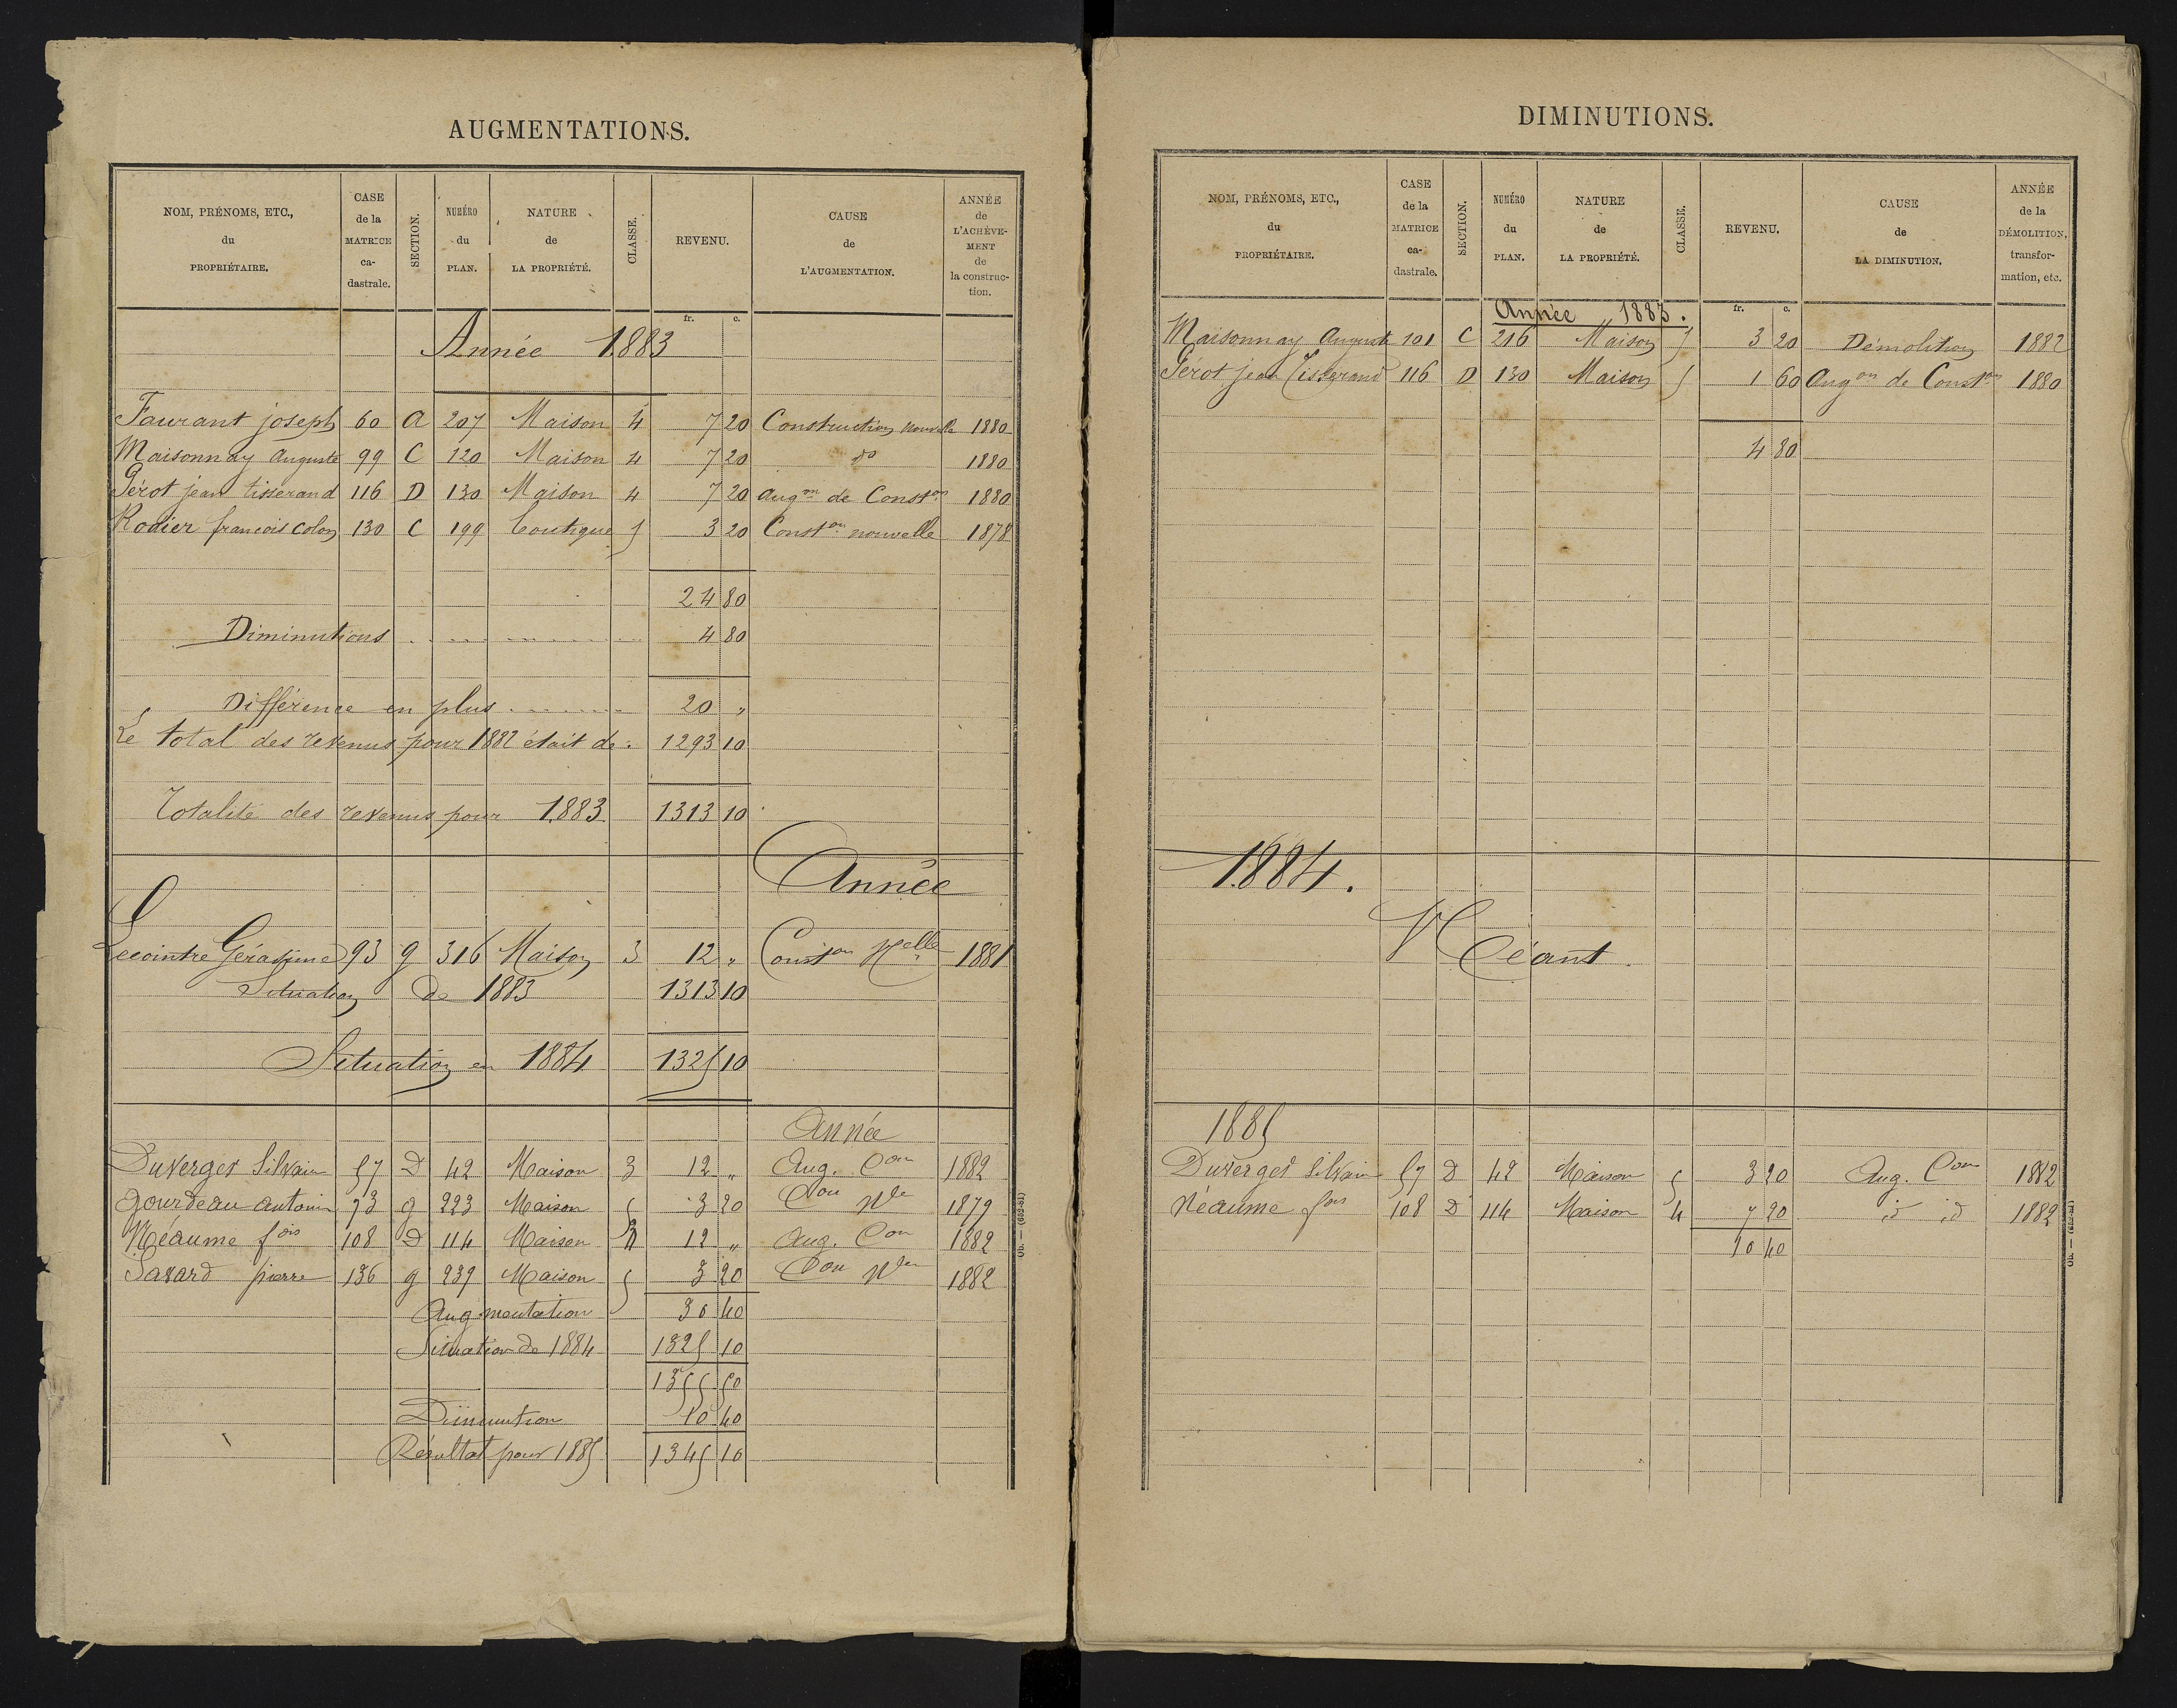 AUGMENTATIONS.
NOM, PRÉNOMS, ETC., du PROPRIÉTAIRE. CASE de la MATRICE ca-dastrale. SECTION. NUMÉRO du PLAN. NATURE de LA PROPRIÉTÉ. CLASSE. REVENU. CAUSE de L'AUGMENTATION. ANNÉE de L'ACHÈVE-MENT de la construc-tion.
fr. c.
Année 1883
Faurant joseph 60 A 207 Maison 4 7 20 Construction nouvelle 1880
Maisonnay Auguste 99 C 120 Maison 4 7 20 do 1880
Pérot jean tisserand 116 D 130 Maison 4 7 20 Augon de Conston 1880
Rodier francois colon 130 C 199 boutique 5 3 20 Conston nouvelle 1878
24 80
Diminutions 4 80
Différence en plus 20 "
Le total des revenus pour 1882 était de 1293 10
Totalité des revenus pour 1883 1313 10
Année
Lecointre 93 g 316 Maison 3 12 " Conston Nelle 1881
Situation de 1883 1313 10
Situation en 1884 1325 10
Année
Duverger Silvain 57 D 42 Maison 3 12 " Aug. Con 1882
Gourdeau antonin 73 g 223 Maison 5 3 20 Con Nle 1879
Néaume fois 108 D 114 Maison 3 12 " Aug. Con 1882
Savard pierre 136 g 239 Maison 5 3 20 Con Nle 1882
Augmentation 30 40
Situation de 1884 1325 10
1355 50
Diminution 10 40
Résultat pour 1885 1345 10
Ob. — (652-81)
DIMINUTIONS.
NOM, PRÉNOMS, ETC., du PROPRIÉTAIRE. CASE de la MATRICE ca-dastrale. SECTION. NUMÉRO du PLAN. NATURE de LA PROPRIÉTÉ. CLASSE. REVENU. CAUSE de LA DIMINUTION. ANNÉE de la DÉMOLITION, transfor-mation, etc.
fr. c.
Année 1883.
Maisonnay Auguste 101 C 216 Maison 5 3 20 Démolition 1882
Pérot jean Tisserand 116 D 130 Maison 5 1 60 Augon de Conston 1880
4 80
1884.
Néant.
1885
Duverger Silvain 57 D 42 Maison 5 3 20 Aug. Con 1882
Néaume fois 108 D 114 Maison 4 7 20 id id 1882
10 40